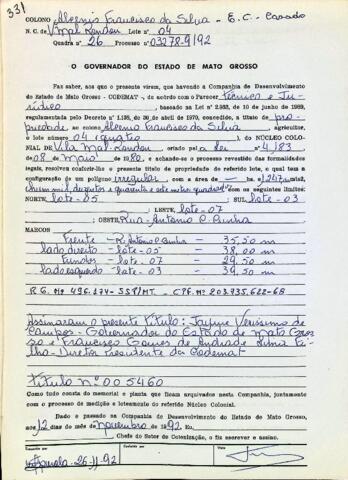 331
COLONO Alcenio Francisco da Silva - E.C. - Casado
N. C. de V. Mal. Rondon Lote nº 04
Quadra nº 26 Processo nº 03278-9/92
O GOVERNADOR DO ESTADO DE MATO GROSSO
Faz saber, aos que o presente virem, que havendo a Companhia de Desenvolvimento
do Estado de Mato Grosso - CODEMAT -, de acordo com o Parecer técnico e Ju-
rídico, baseado na Lei nº 2.883, de 10 de junho de 1969
regulamentada pelo Decreto nº 1.135, de 30 de abril de 1970, concedido, a título de pro-
priedade, ao colono Alcenio Francisco da Silva, agricultor,
o lote número 04 (quatro), do NÚCLEO COLO-
NIAL DE Vila Mal. Rondon criado pela a lei nº 4.183
de 08 de maio de 1980, e achando-se o processo revestido das formalidades
legais, resolveu conferir-lhe o presente título de propriedade do referido lote, o qual tem a
configuração de um polígono irregular com a área de 1.247 metros
(hum mil, duzentos e quarenta e sete metros quadrados) com os seguintes limites:
NORTE, lote-05 SUL, lote-03
LESTE, lote-07
OESTE, Rua Antonio C. Cunha
MARCOS
Frente - R. Antônio C. Cunha - 35,50 m
lado direito - lote-05 - 38,00 m
Fundos - lote-07 - 29,50 m
lado esquerdo - lote-03 - 39,50 m
R.G. Nº 496.174-SSP/MT. - CPF. Nº 203.735.622-68
Assinaram o presente título: Jayme Veríssimo de
Campos - Governador do Estado de Mato Gros
so e Francisco Gomes de Andrade Lima Fi-
lho - Diretor Presidente da Codemat
Título nº 005460
Como tudo consta do memorial e planta que ficam arquivados nesta Companhia, juntamente
com o processo de medição e loteamento do referido Núcleo Colonial.
Dado e passado na Companhia de Desenvolvimento do Estado de Mato Grosso,
aos 12 dias do mês de novembro de 1992 Eu,
Chefe do Setor de Colonização, o fiz escrever e assino.
Escriturado por
Conferido por
Visto
26-11-92